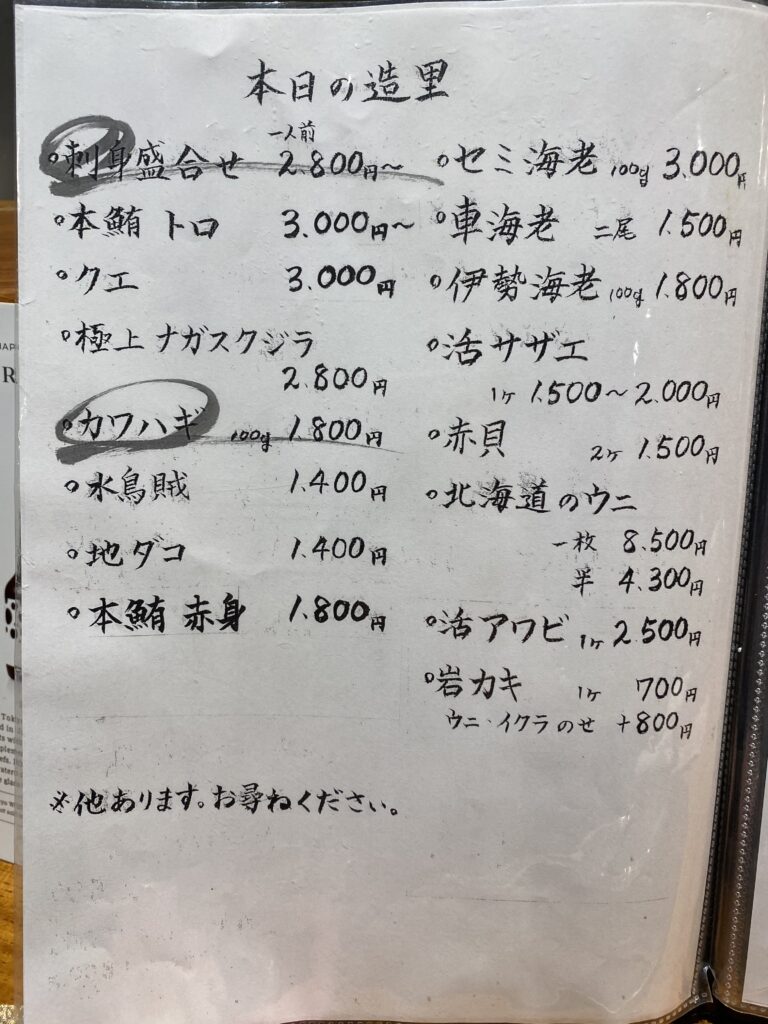 本日の造里
一人前
・刺身盛合せ 2.800円〜
・本鮪 トロ 3.000円〜
・クエ 3.000円
・極上 ナガスクジラ
2.800円
・カワハギ 100g 1.800円
・水鳥賊 1.400円
・地ダコ 1.400円
・本鮪 赤身 1.800円
・セミ海老 100g 3.000円
・車海老 二尾 1.500円
・伊勢海老 100g 1.800円
・活サザエ
1ヶ 1.500〜2.000円
・赤貝 2ヶ 1.500円
・北海道のウニ
一枚 8.500円
半 4.300円
・活アワビ 1ヶ 2.500円
・岩カキ 1ヶ 700円
ウニ・イクラのせ +800円
※他あります。お尋ねください。